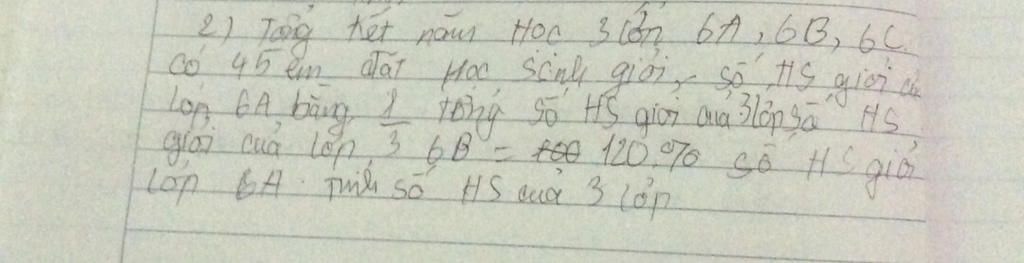 2) Tổng kết năm Học 3 lớp 6A, 6B, 6C
có 45 em đạt Học sinh giỏi, số HS giỏi của
lớp 6A bằng 1/3 tổng số HS giỏi của 3 lớp số HS
giỏi của lớp 6B = 120% số HS giỏi
lớp 6A. Tính số HS của 3 lớp